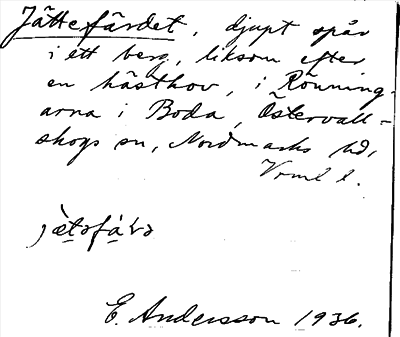 Jättefärdet, djupt spår
i ett berg, liksom efter
en hästhov, i Rönning-
arna i Boda, Östervall-
skogs sn, Nordmarks hd,
Vrml l.
E. Andersson 1936.